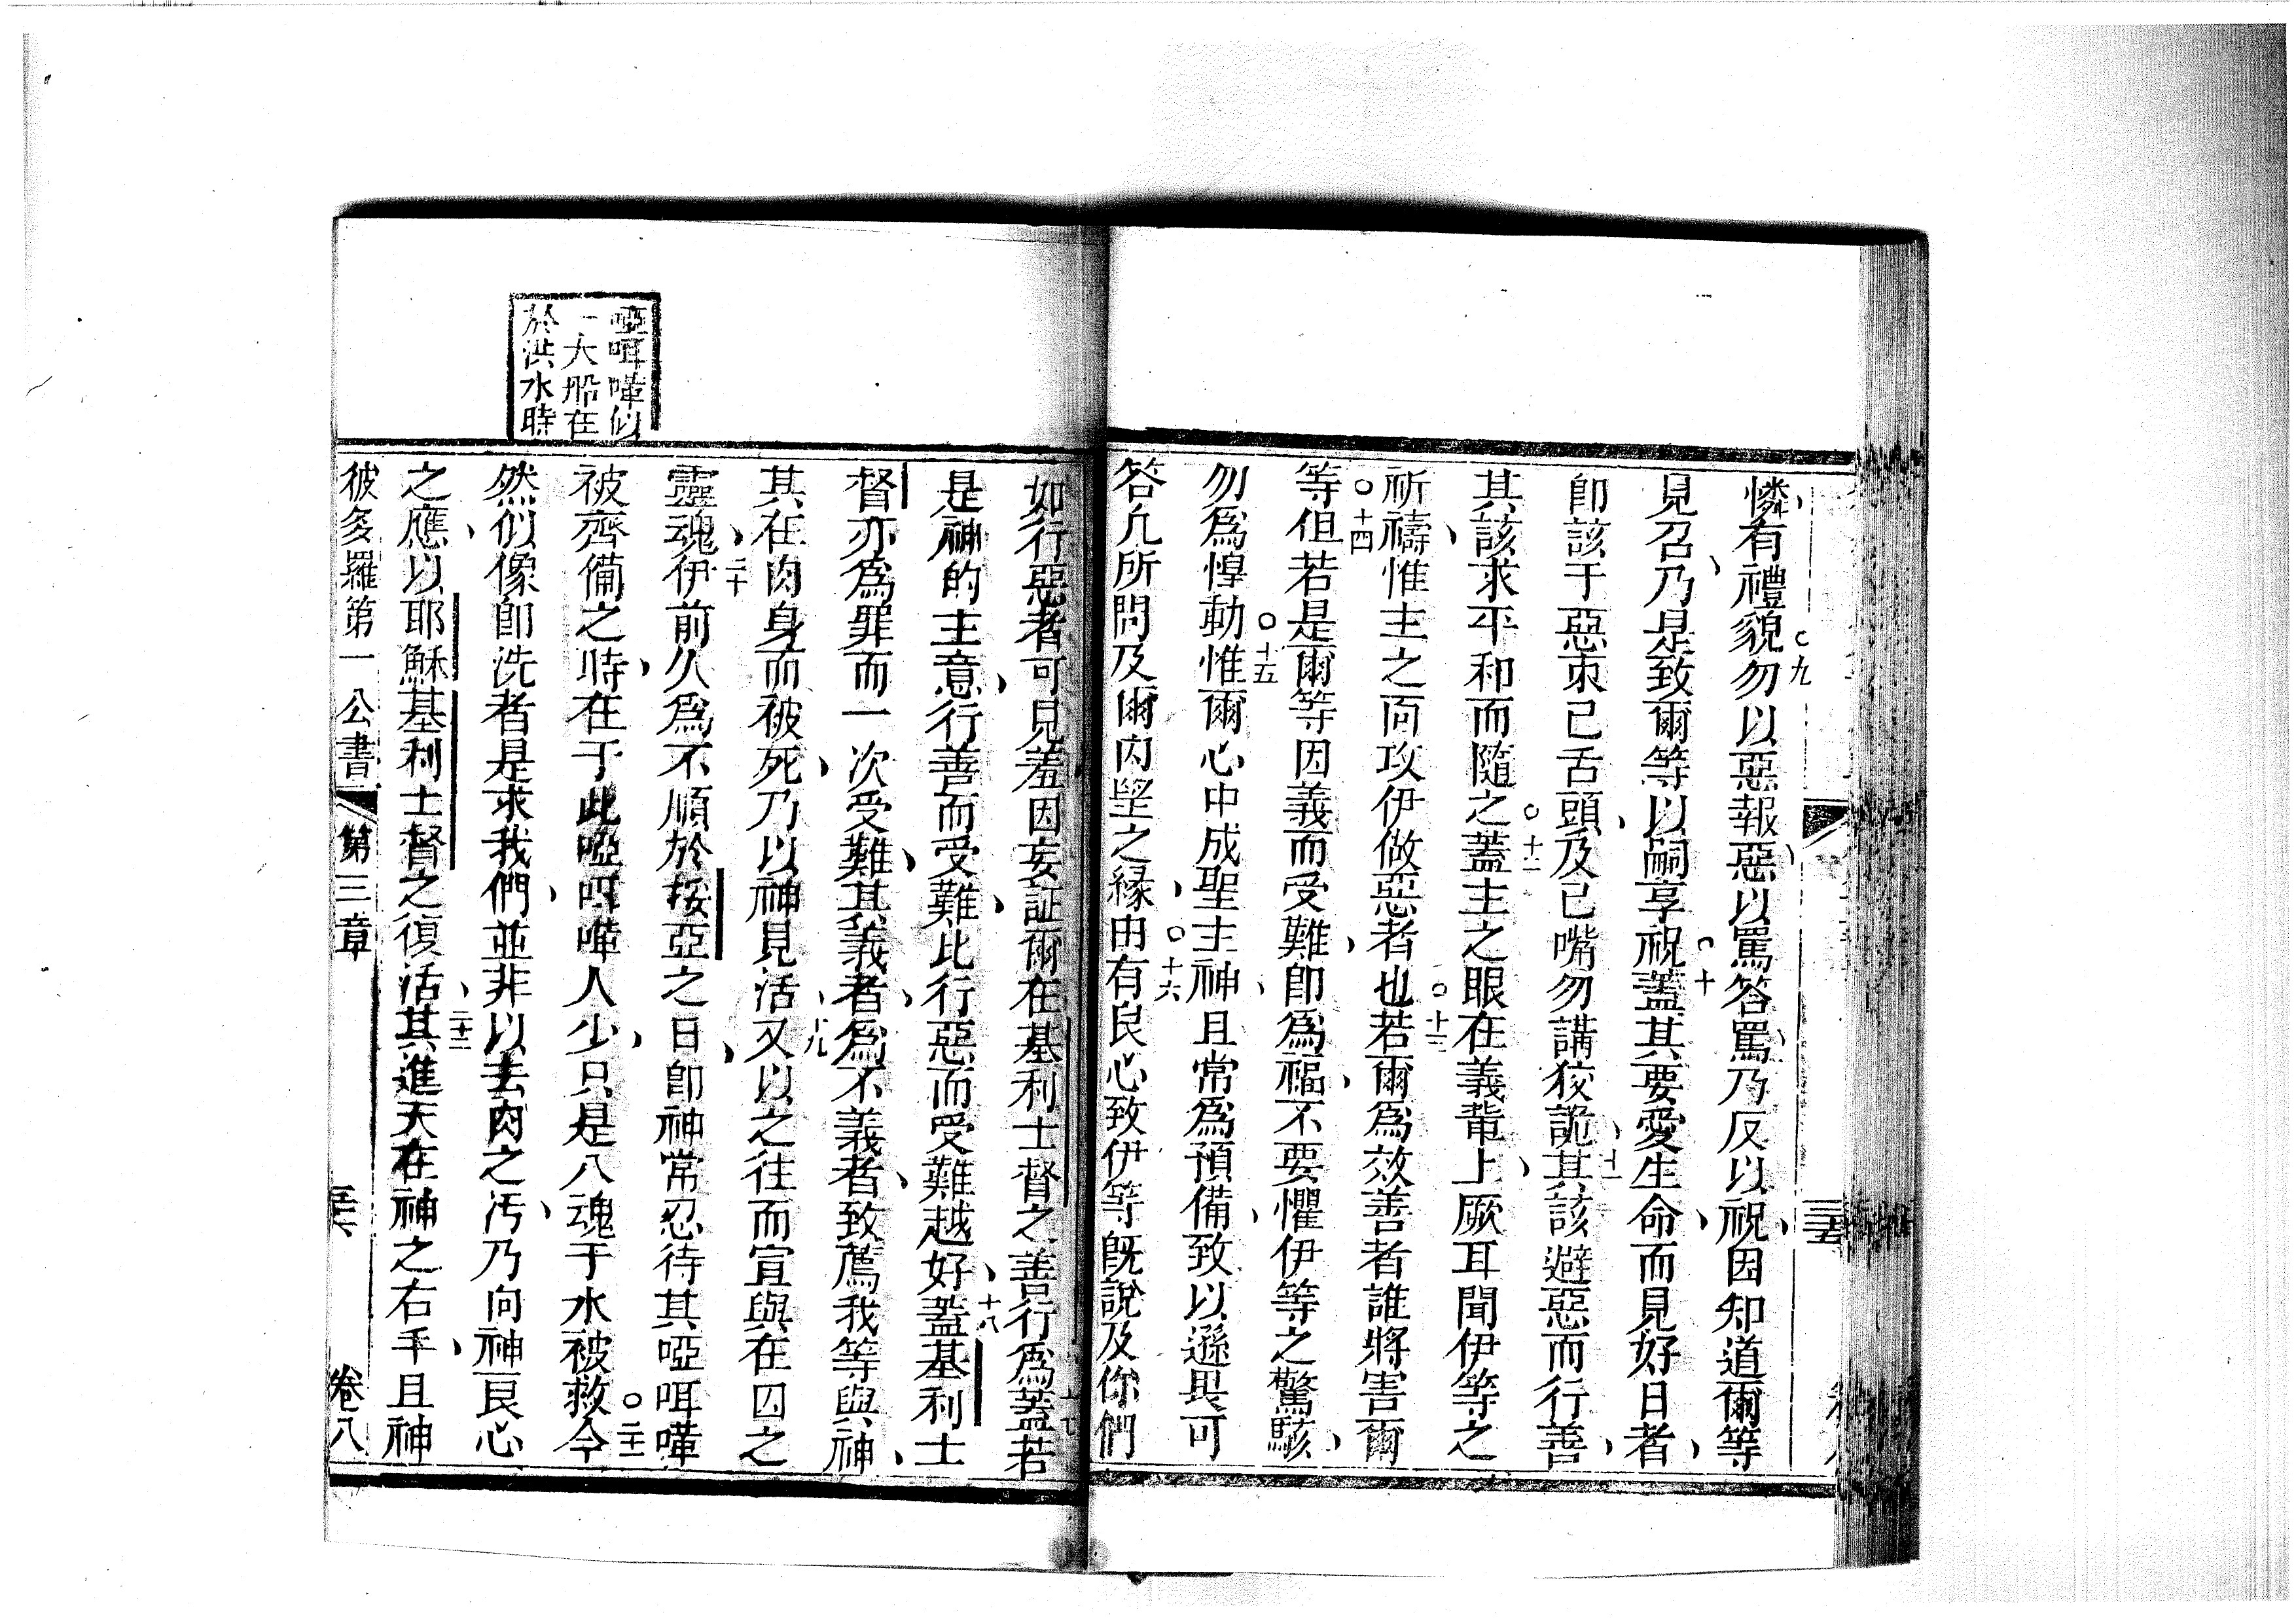 憐、有禮貌○九勿以惡報惡、以罵答罵、乃反以祝、因知道爾等
見召、乃是致爾等以嗣享祝○十蓋其要愛生命、而見好日者、
卽該于惡朿己舌頭、及己嘴勿講狡詭、十一其該避惡而行善、
其該求平和而隨之○十二蓋主之眼在義輩上、厥耳聞伊等之
祈禱、惟主之面攻伊做惡者也○十三若爾爲效善者誰將害爾
等○十四但若是爾等因義而受難、卽爲福、不要懼伊等之驚駭、
勿爲惶動○十五惟爾心中成聖主神、且常爲預備、致以遜畏可
答凢所問及爾內望之緣由、○十六有良心致伊等旣說及你們
如行惡者、可見羞因妄証爾在基利士督之善行爲十七蓋若
是神的主意、行善而受難、比行惡而受難越好、十八蓋基利士
督亦爲罪而一次受難、其義者、爲不義者、致薦我等與神、
其在肉身而被死、乃以神見活、十九又以之往而宣與在囚之
靈魂、二十伊前久爲不順於挼亞之日、卽神常忍待其啞咡嗶
被齊備之時、在于此啞咡嗶人少、只是八魂于水被救○二十一今
然似像卽洗者是求我們、並非以去肉之汚、乃向神良心
之應、以耶穌基利士督之復活、二十二其進天在神之右手、且神
啞咡嗶似
一大船在
於洪水時
彼多羅第一公書 第三章 卷八